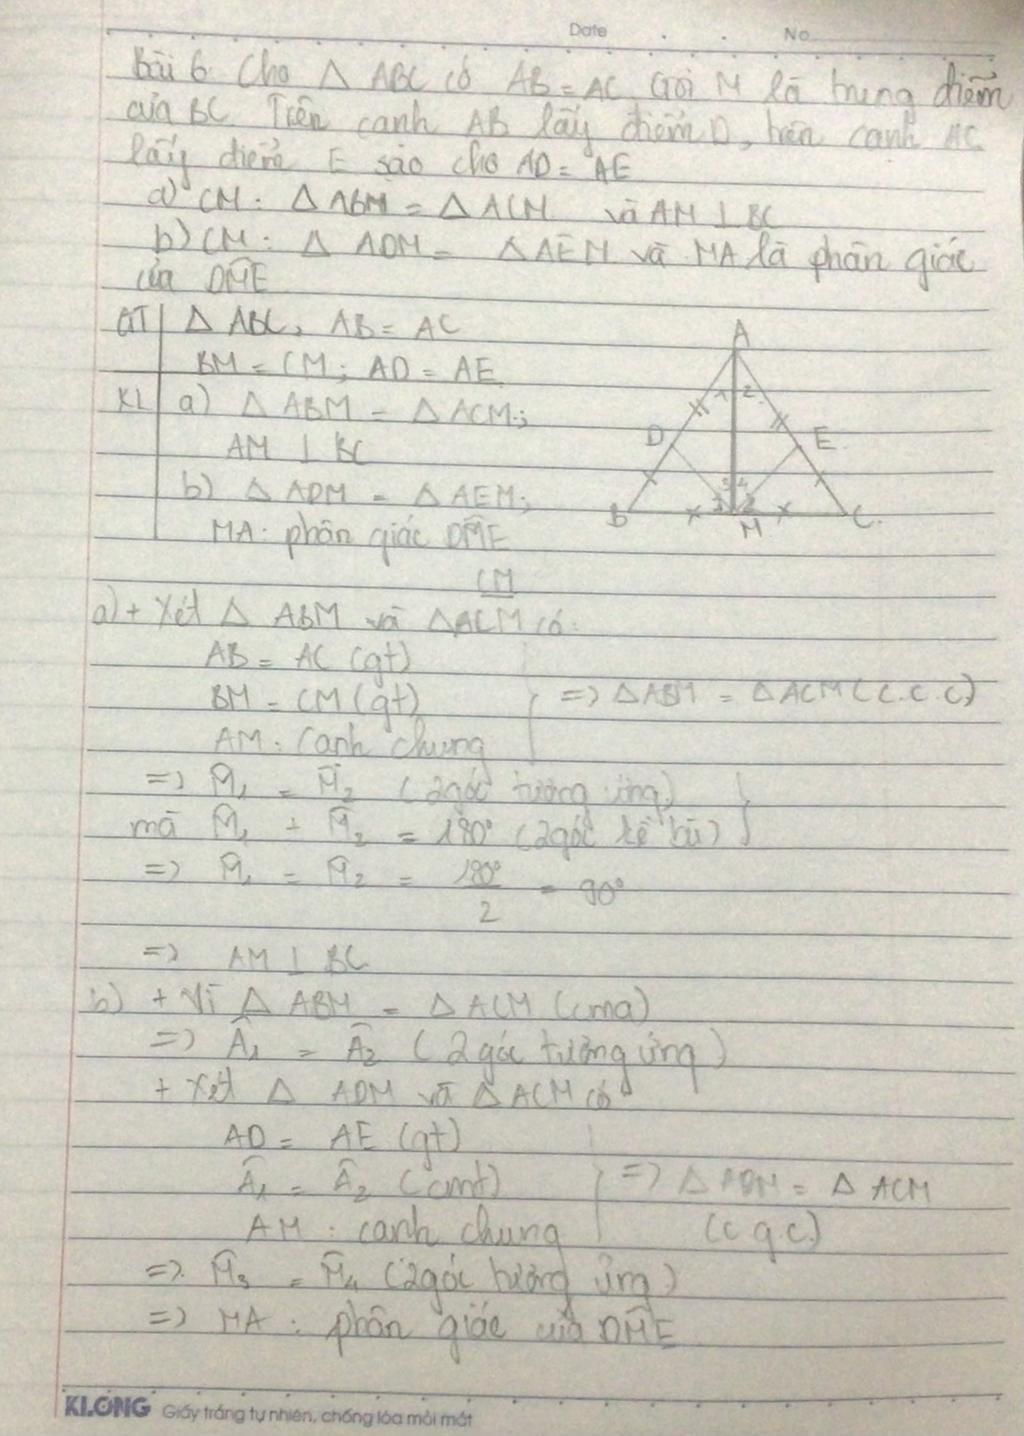 Date No
Bài 6 Cho △ ABC có AB = AC Gọi M là trung điểm
của BC Trên cạnh AB lấy điểm D, trên cạnh AC
lấy điểm E sao cho AD = AE
a) CM: △ ABM = △ ACM và AM ⊥ BC
b) CM: △ ADM = △ AEM và MA là phân giác
của DM̂E
GT △ ABC, AB = AC
BM = CM; AD = AE
KL a) △ ABM = △ ACM;
AM ⊥ BC
b) △ ADM = △ AEM;
MA: phân giác DM̂E
A
1 2
D E
3 4
1 2
B M C
CM
a) + Xét △ ABM và △ACM có:
AB = AC (gt)
BM = CM (gt) => △ABM = △ACM (c.c.c)
AM: cạnh chung
=> M̂₁ = M̂₂ (2 góc tương ứng)
mà M̂₁ + M̂₂ = 180° (2 góc kề bù)
=> M̂₁ = M̂₂ = 180°/2 = 90°
=> AM ⊥ BC
b) + Vì △ ABM = △ ACM (cma)
=> Â₁ = Â₂ (2 góc tương ứng)
+ Xét △ ADM và △ ACM có
AD = AE (gt)
Â₁ = Â₂ (cmt) => △ ADM = △ ACM
AM: cạnh chung (c g c)
=> M̂₃ = M̂₄ (2 góc tương ứng)
=> MA: phân giác của DM̂E
KLONG Giấy trắng tự nhiên, chống lóa mỏi mắt